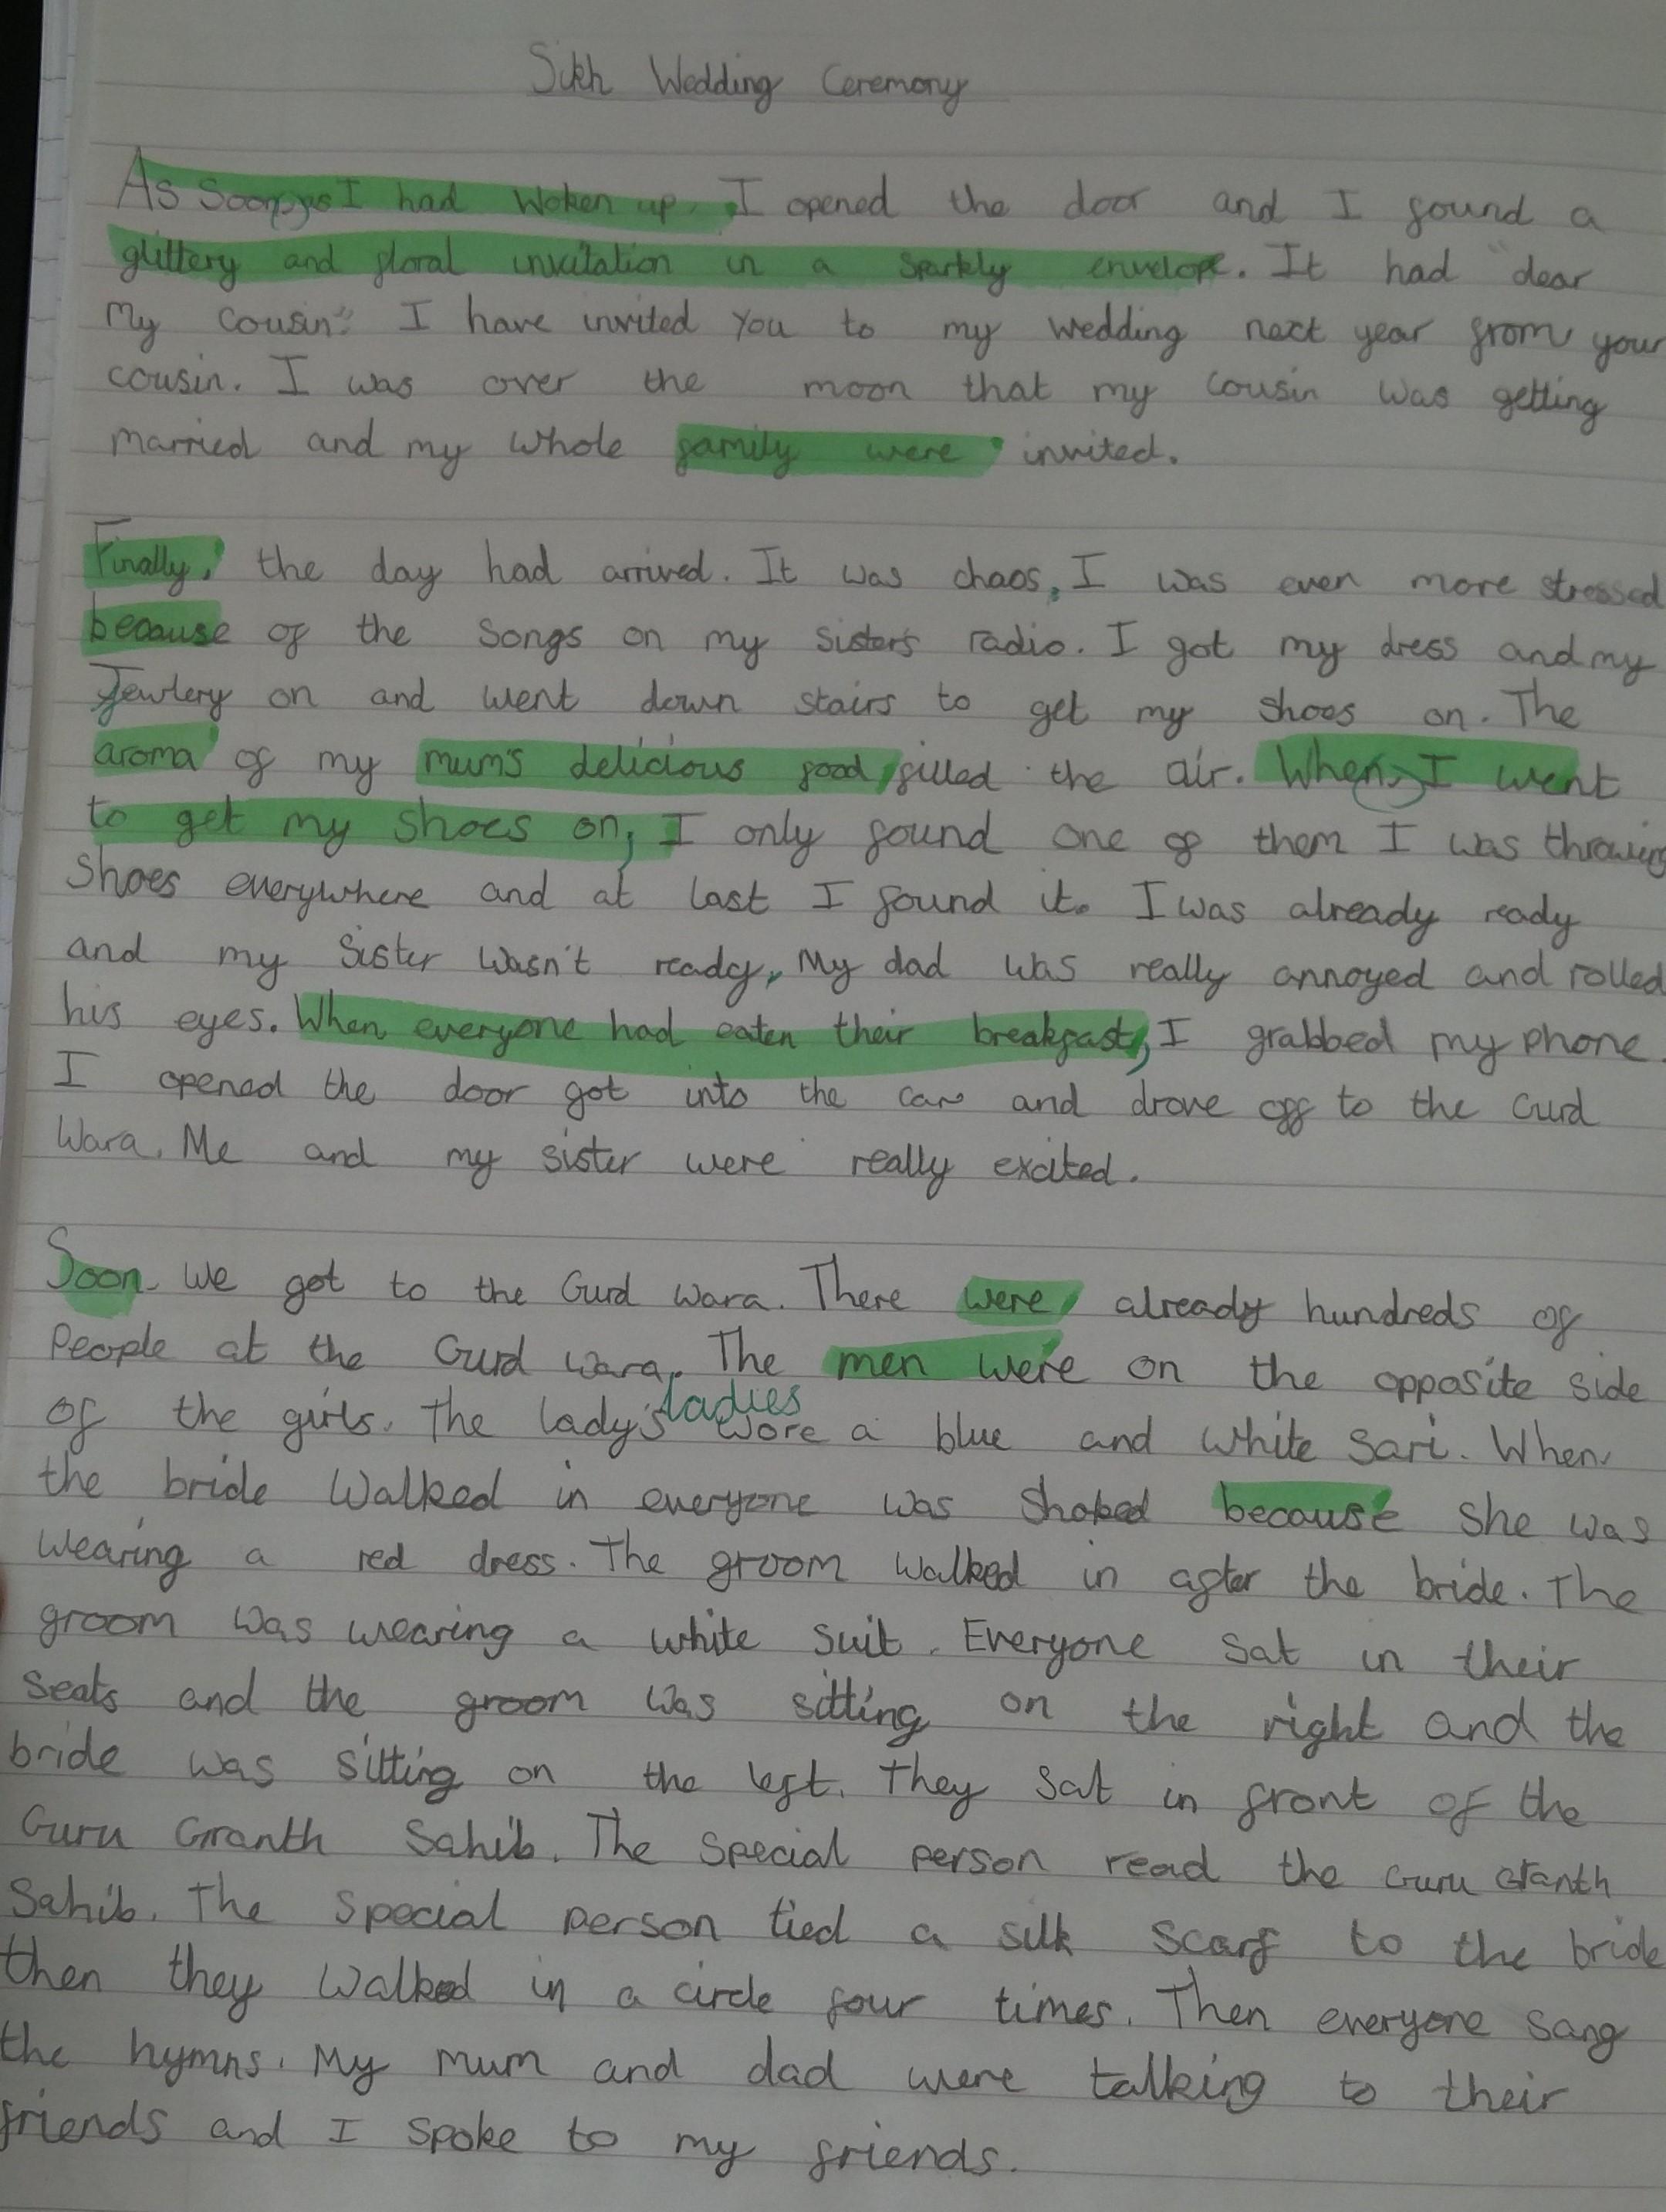 Sikh Wedding Ceremony
As Soon as I had Woken up, I opened the door and I found a
glittery and floral invitation in a sparkly envelope. It had "dear
My Cousin" I have invited you to my wedding next year from your
cousin. I was over the moon that my cousin was getting
married and my whole family were invited.
Finally, the day had arrived. It was chaos, I was even more stressed
because of the songs on my sister's radio. I got my dress and my
Jewlery on and went down stairs to get my shoes on. The
aroma of my mum's delicious food filled the air. When I went
to get my shoes on, I only found one of them I was throwing
Shoes everywhere and at last I found it. I was already ready
and my sister wasn't ready, My dad was really annoyed and rolled
his eyes. When everyone had eaten their breakfast, I grabbed my phone.
I opened the door got into the car and drove off to the Gurd
Wara. Me and my sister were really excited.
Soon we got to the Gurd wara. There were already hundreds of
People at the Gurd wara. The men were on the opposite side
of the girls. The lady's ladies wore a blue and white sari. When
the bride walked in everyone was because she was
wearing a red dress. The groom walked in after the bride. The
groom was wearing a white suit. Everyone sat in their
seats and the groom was sitting on the right and the
bride was sitting on the left. They sat in front of the
Guru Granth Sahib. The special person read the Guru Granth
Sahib. The special person tied a silk scarf to the bride
then they walked in a circle four times. Then everyone sang
the hymns. My mum and dad were talking to their
friends and I spoke to my friends.